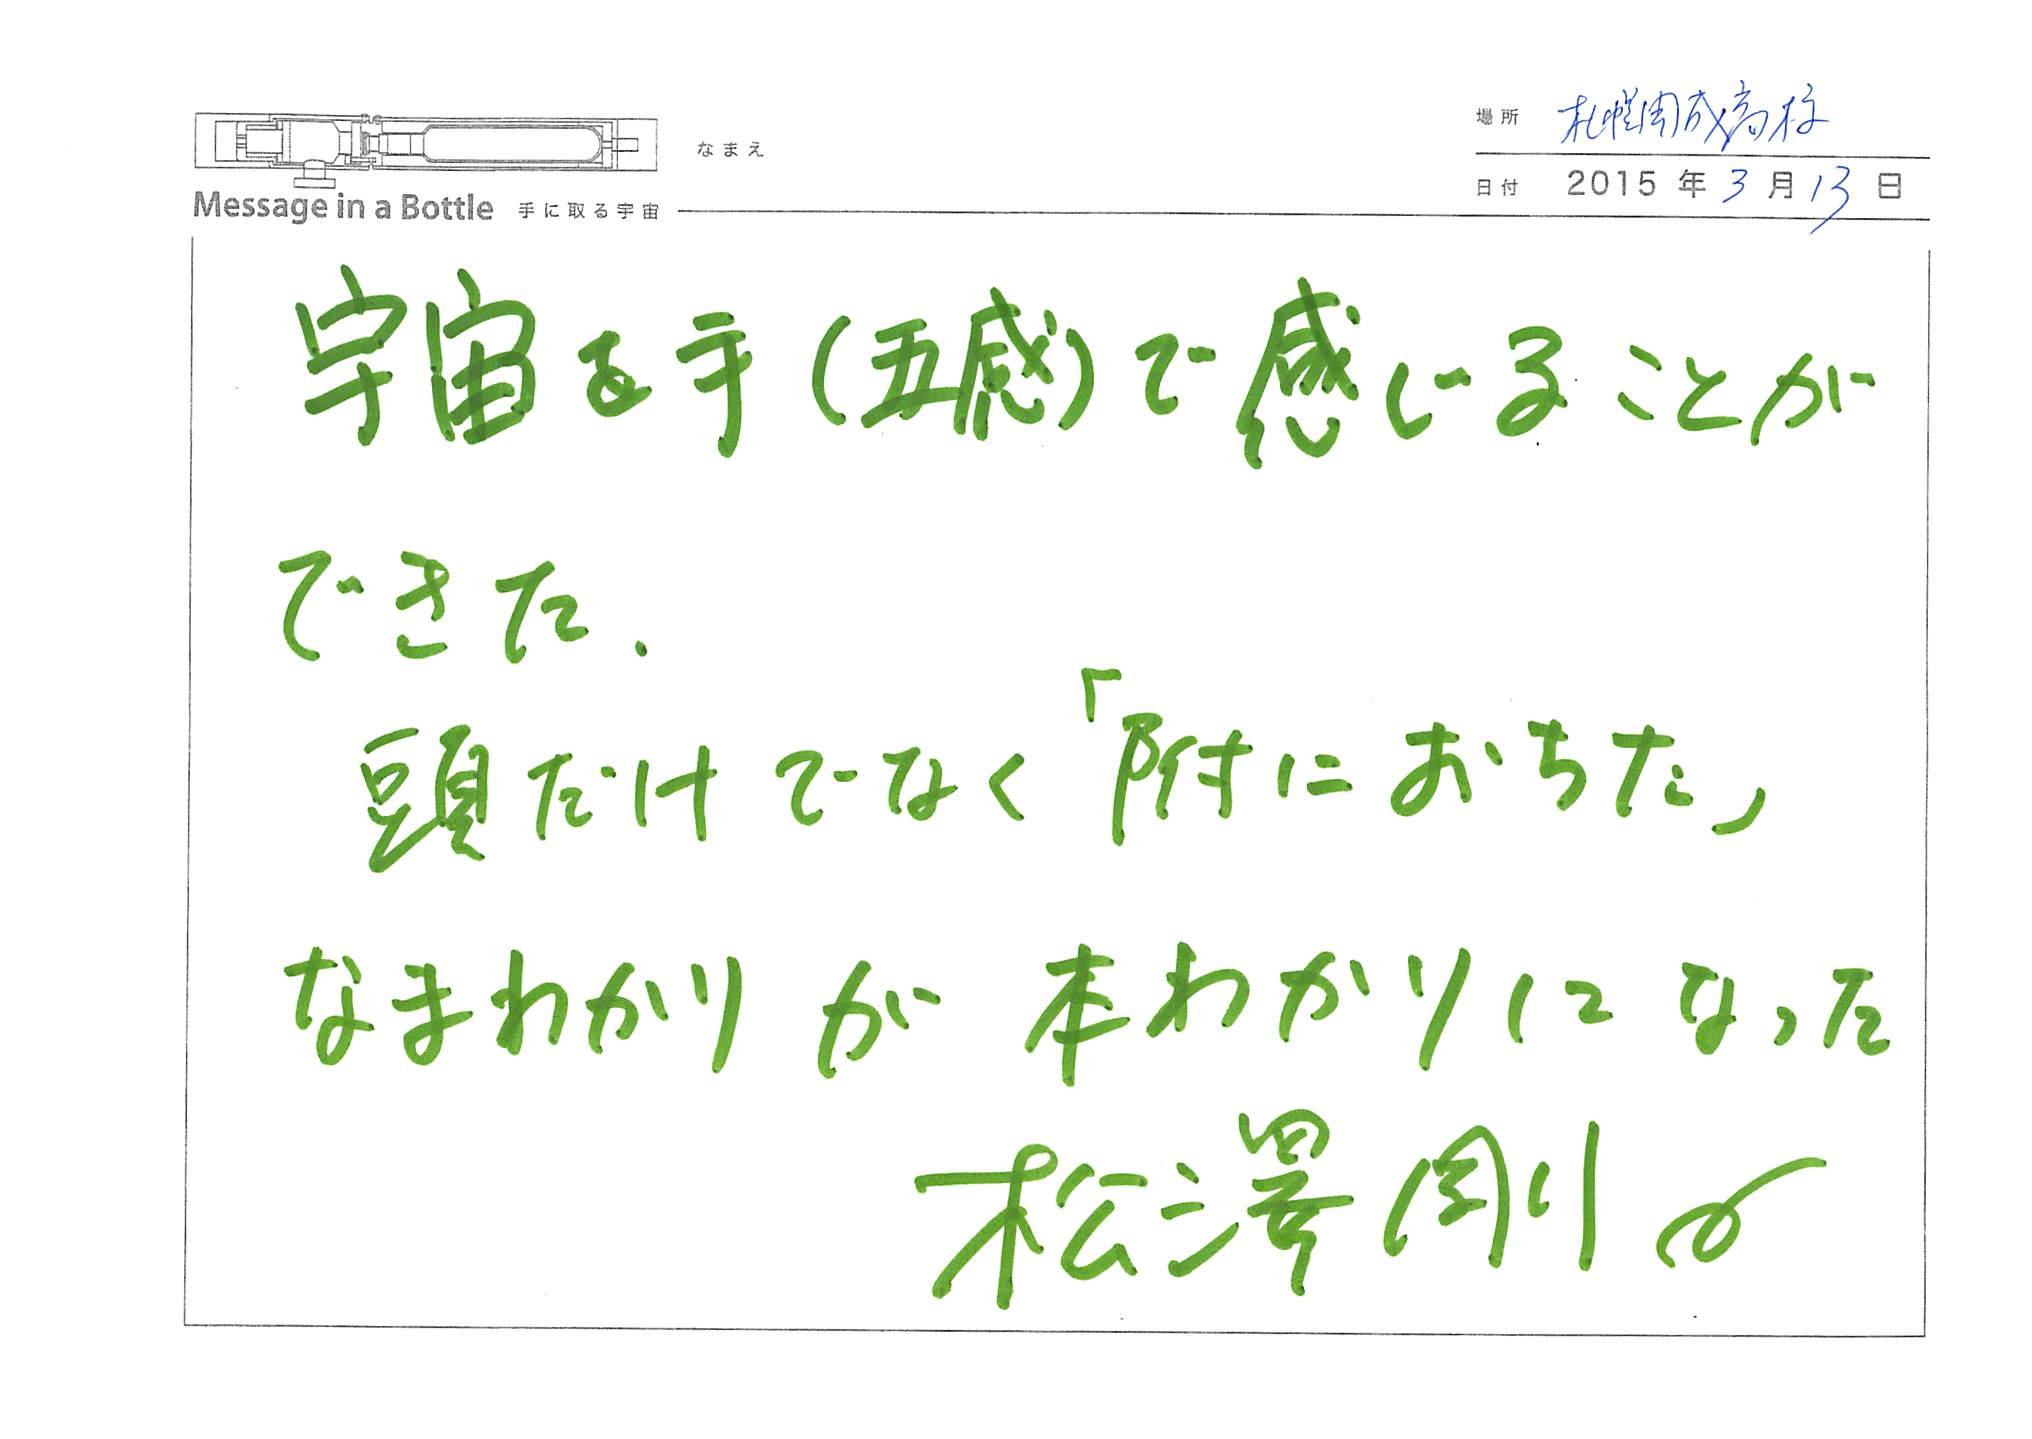 場所 札幌開成高校
なまえ
日付 2015年3月13日
Message in a Bottle 手に取る宇宙
宇宙を手(五感)で感じることが
できた.
頭だけでなく「附におちた」
なまわかりが本わかりになった
松澤剛